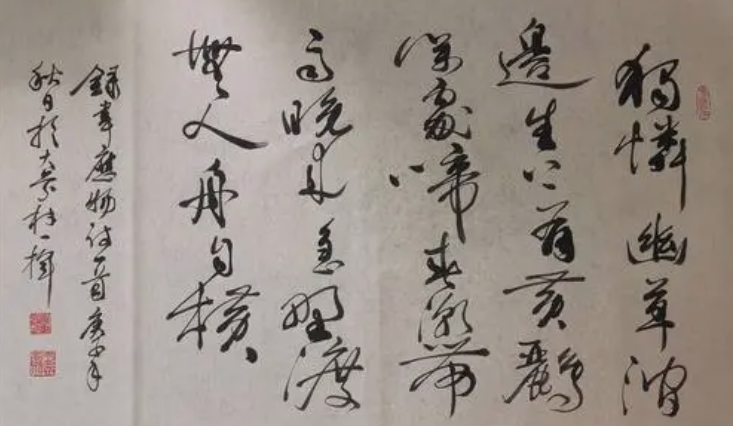 獨憐幽草澗
邊生上有黄鸝
深處啼春潮帶
雨晚來急野渡
無人舟自横
錄韋應物詩一首庚子年
秋日於大